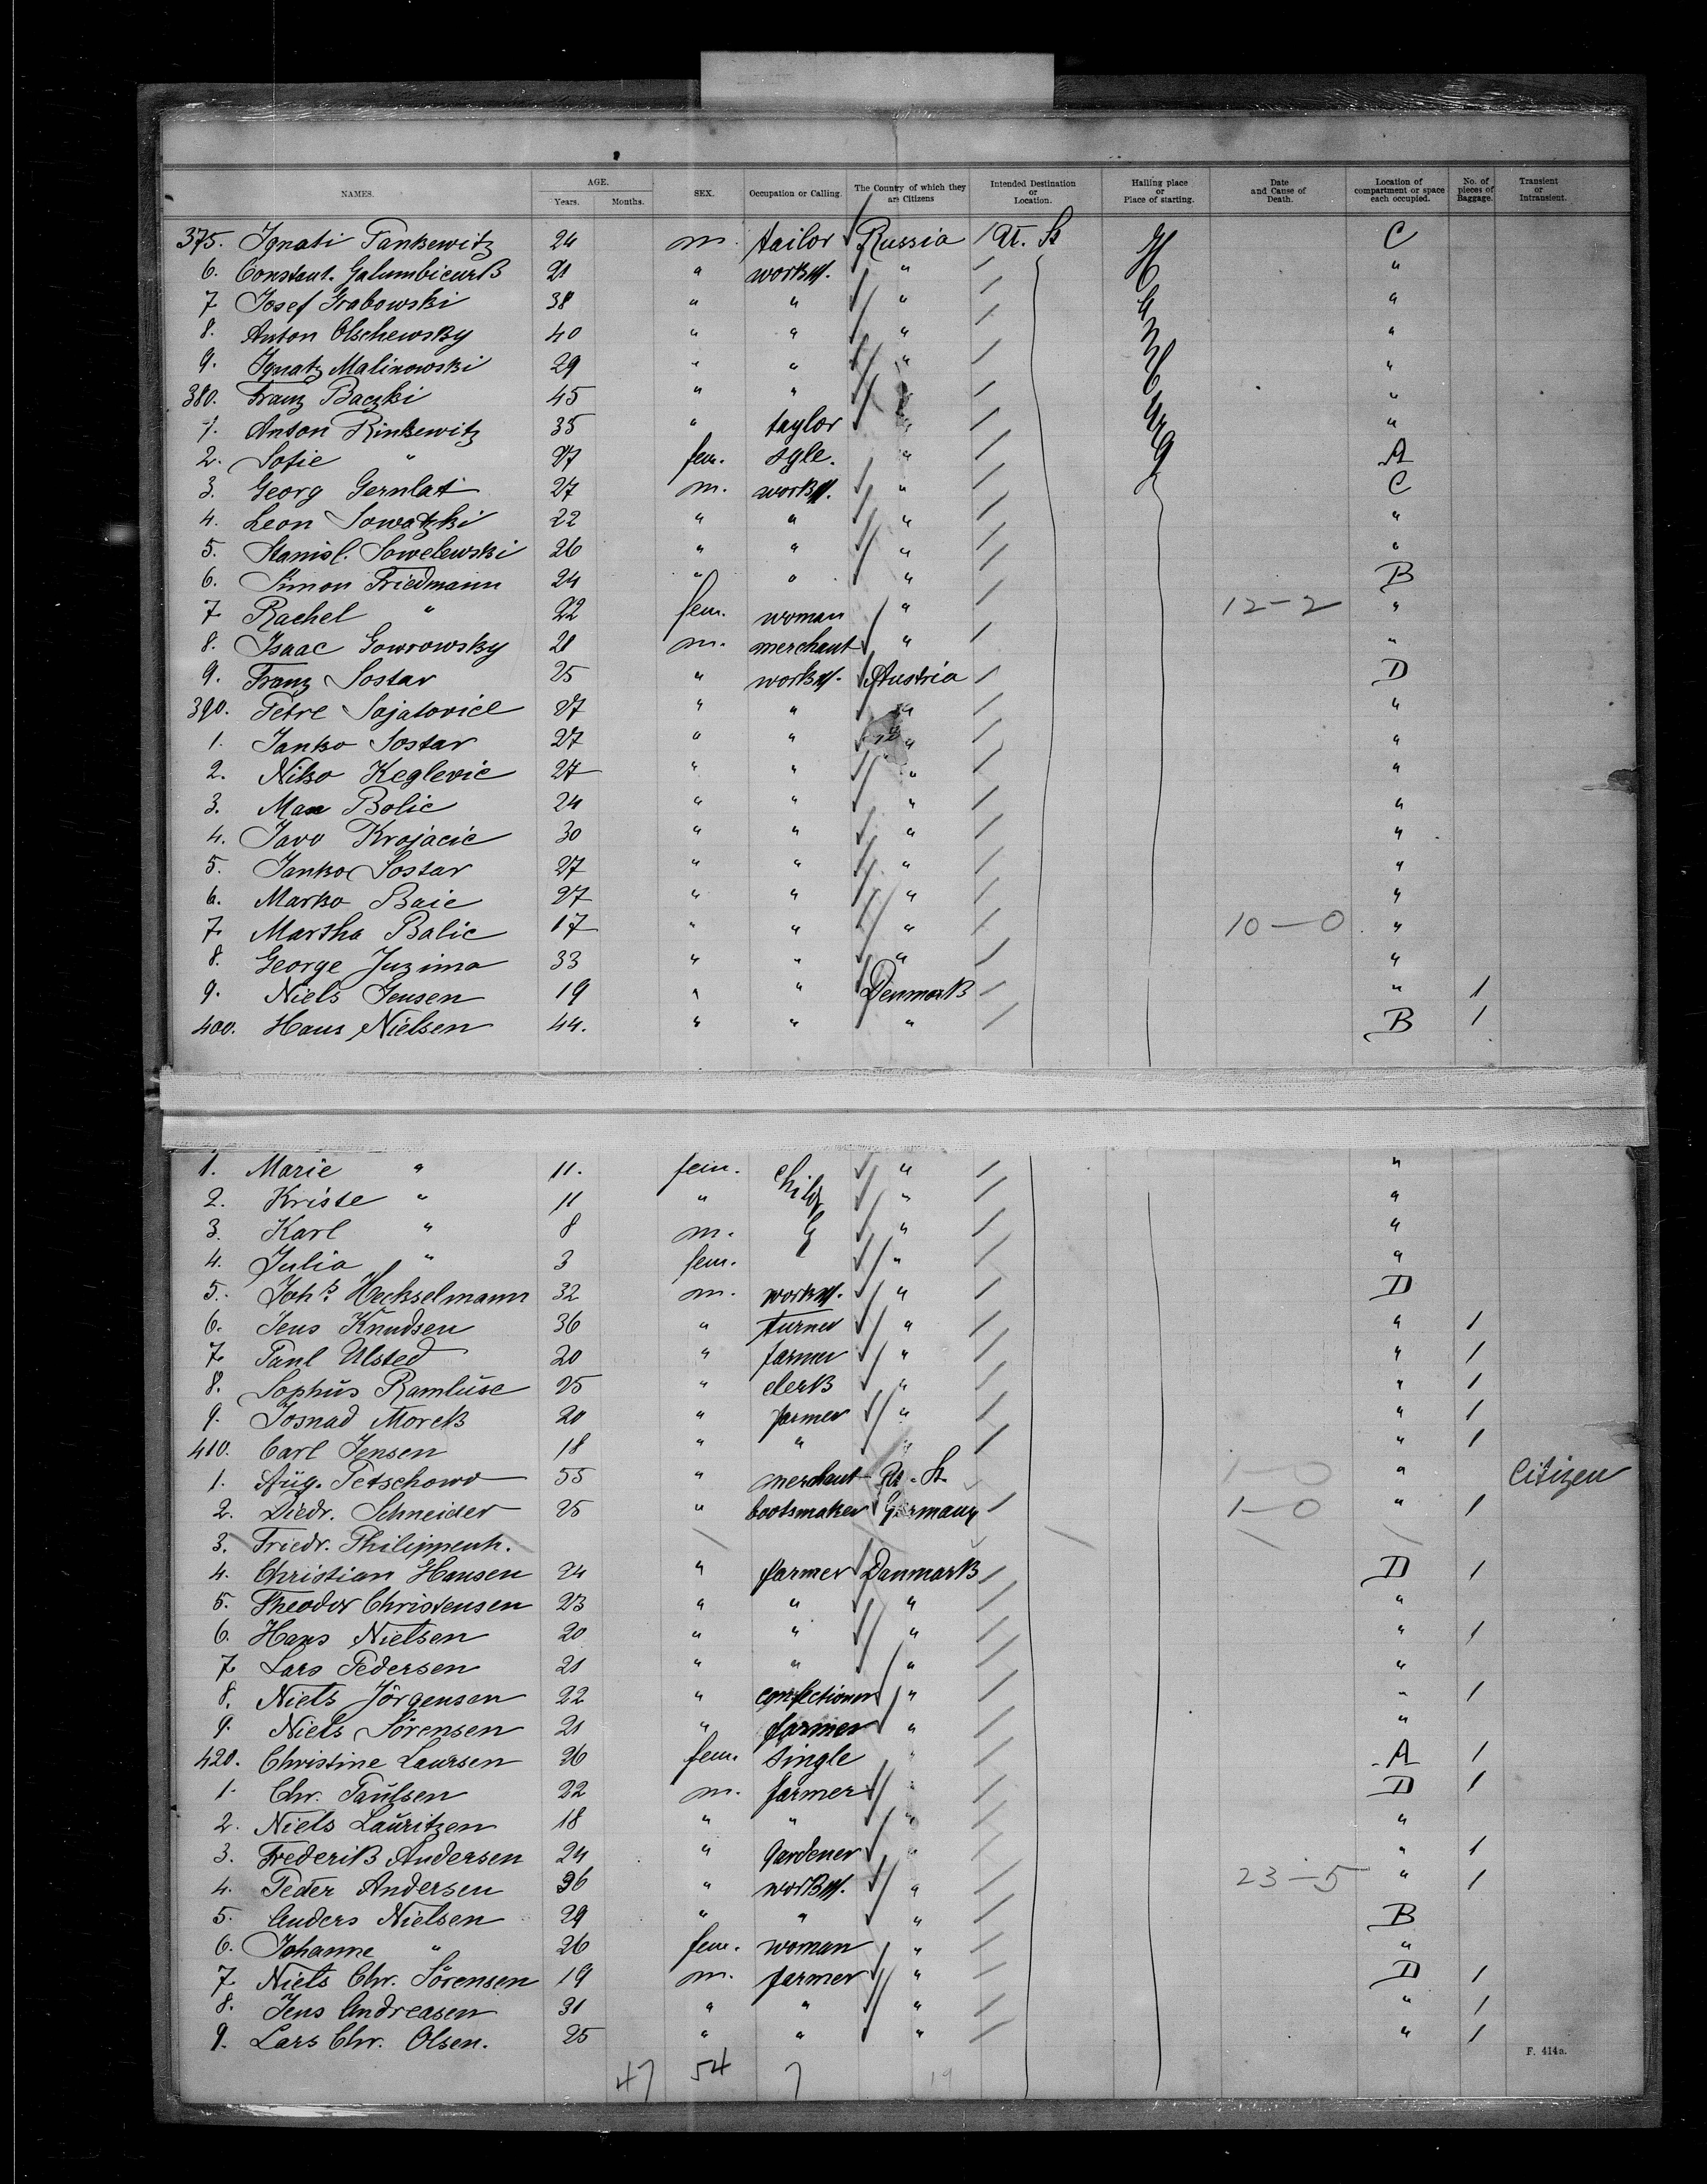 NAMES. AGE. Years. Months. SEX. Occupation or Calling. The Country of which they are Citizens Intended Destination or Location. Hailing place or Place of starting. Date and Cause of Death. Location of compartment or space each occupied. No. of pieces of Baggage. Transient or Intransient.
375. Ignati Pankewitz 24 m. tailor Russia Ut. St C
6. Constant. 21 " workm. " "
7 Josef Grabowski 38 " " " "
8. Anton Olschewsky 40 " " " "
9. Ignatz Malinowski 29 " " " "
380. Franz Baczki 45 " " " "
1. Anton Rinkewitz 35 " taylor " "
2. Sofie " 27 fem. sgle. " A
3. Georg Gernlat 27 m. workm. " C
4. Leon Sowatzki 22 " " " "
5. Stanisl. Sowelewski 26 " " " "
6. Simon Friedmann 24 " " " B
7 Rachel " 22 fem. woman " 12-2 "
8. Isaac Gowrowsky 21 m. merchant " "
9. Franz Sostar 25 " workm. Austria D
390. Petre 27 " " " "
1. Janko Sostar 27 " " " "
2. Niko Keglevic 27 " " " "
3. Max Bolic 24 " " " "
4. Javo Krajacic 30 " " " "
5. Janko Sostar 27 " " " "
6. Marko 27 " " " "
7 Balic 17 " " " 10-0 "
8. George Juzima 33 " " " "
9. Niels Jensen 19 " " Denmark " 1
400. Hans Nielsen 44. " " " B 1
1. Marie " 11. fem. child " "
2. Kriste " 11 " " "
3. Karl " 8 m. " "
4. Julia " 3 fem. " "
5. Hechselmann 32 m. workm. " D
6. Jens Knudsen 36 " turner " " 1
7 Paul Ulsted 20 " farmer " " 1
8. Sophus Ramluse 25 " clerk " " 1
9. Morck 20 " farmer " " 1
410. Carl Jensen 18 " " " " 1
1. Aug. Petschow 55 " merchant St. 1-0 " Citizen
2. Diedr. Schneider 25 " bootsmaker Germany 1-0 " 1
3. Friedr.
4. Christian Hansen 24 " farmer Danmark D 1
5. Theodor Christensen 23 " " " "
6. Hans Nielsen 20 " " " " 1
7 Lars Pedersen 21 " " " "
8. Niels Jörgensen 22 " confectioner " " 1
9. Niels Sörensen 21 " farmer " "
420. Christine Laursen 26 fem. single " A 1
1. Chr. Paulsen 22 m. farmer " D 1
2. Niels Lauritzen 18 " " " "
3. Frederik Andersen 24 " Gardener " " 1
4. Peder Andersen 36 " workm. " 23-5 " 1
5. Anders Nielsen 29 " " " B
6. Johanne " 26 fem. woman " "
7 Niels Chr. Sörensen 19 m. farmer " D 1
8. Jens Andreasen 31 " " " " 1
9. Lars Chr. Olsen. 25 " " " " 1
F. 414a.
47 54 7 19